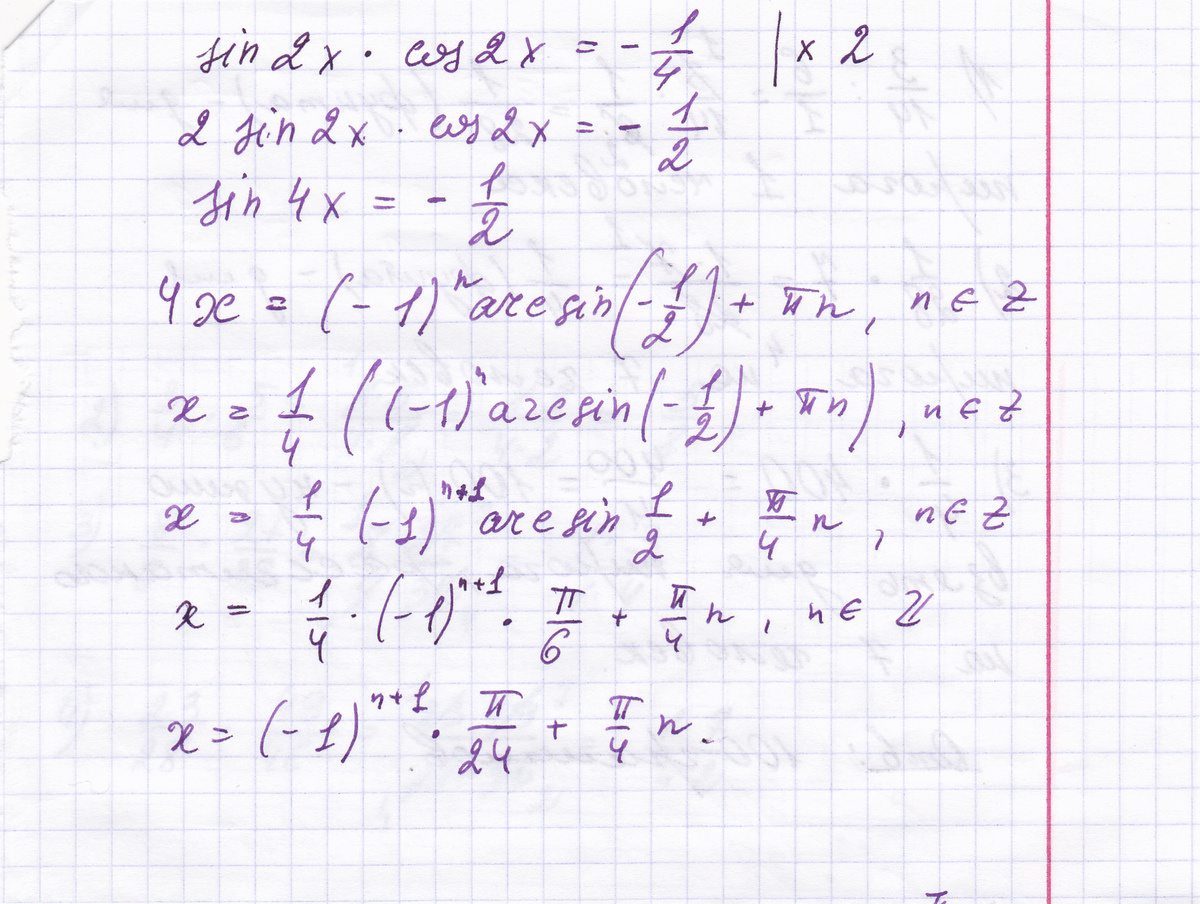 sin 2x · cos 2x = - 1/4 | x 2
2 sin 2x · cos 2x = - 1/2
sin 4x = - 1/2
4x = (-1)^n arcsin(-1/2) + πn, n ∈ Z
x = 1/4 ((-1)^n arcsin(-1/2) + πn), n ∈ Z
x = 1/4 (-1)^(n+1) arcsin 1/2 + π/4 n, n ∈ Z
x = 1/4 · (-1)^(n+1) · π/6 + π/4 n, n ∈ Z
x = (-1)^(n+1) · π/24 + π/4 n.